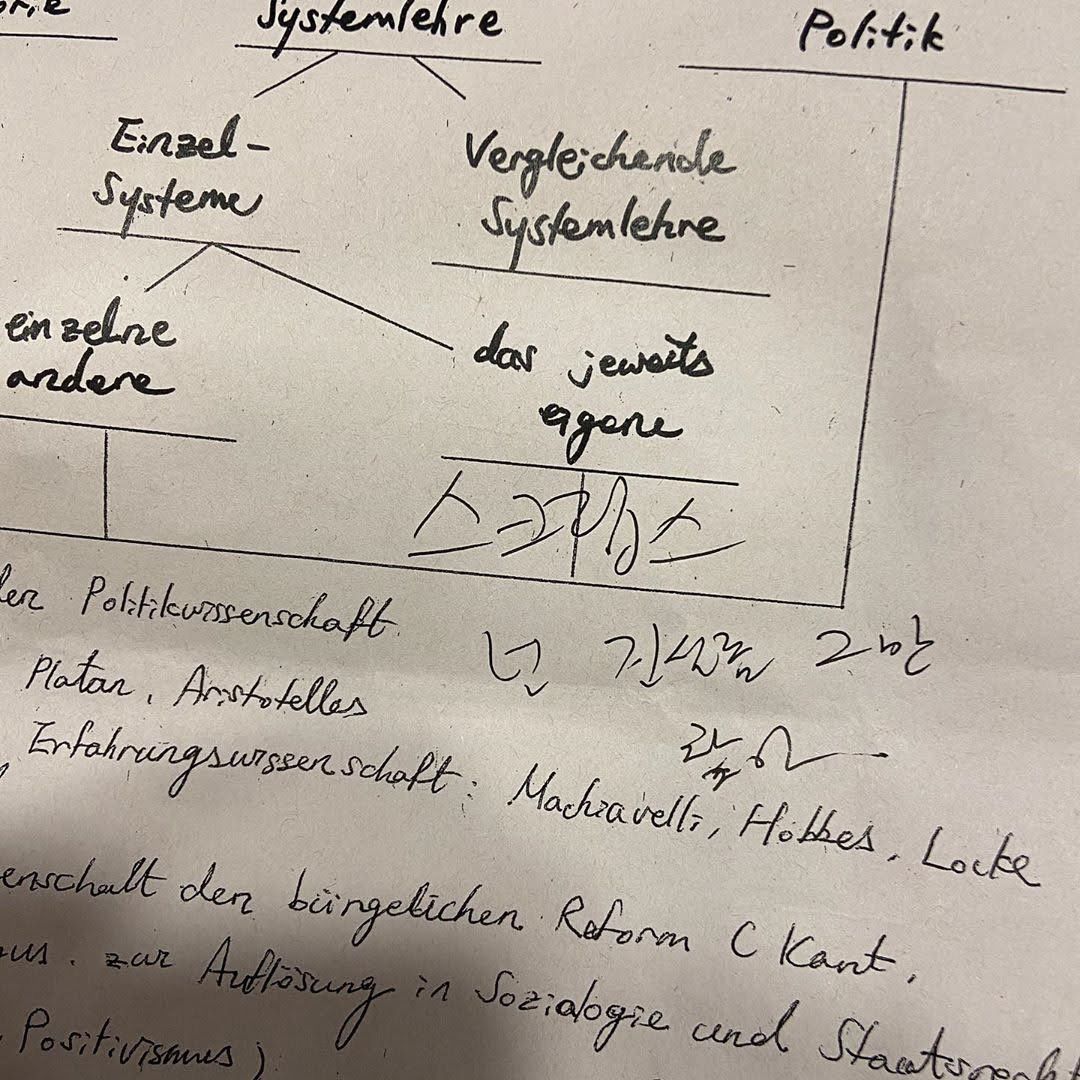 Systemlehre
Politik
Einzel-
Systeme
Vergleichende
Systemlehre
einzelne
andere
das jeweils
eigene
넌
그만
Politikwissenschaft
Platon, Aristotelles
Erfahrungswissenschaft: Machiavelli, Hobbes, Locke
den bürgelichen Reform ( Kant,
zur Auflösung in Soziologie und
Positivismus)